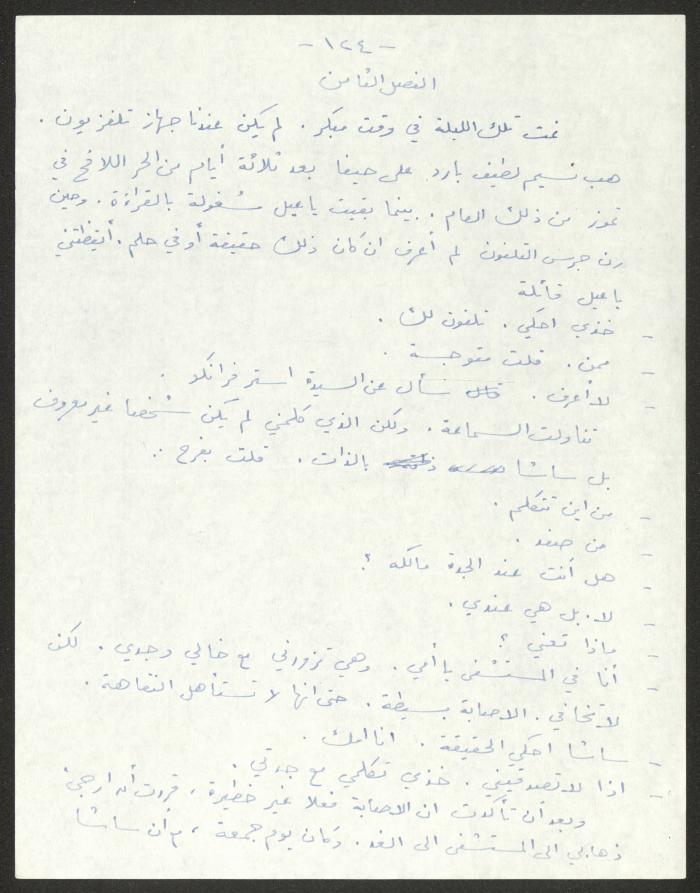 - ١٢٤ -
الفصل الثامن
نمت تلك الليلة في وقت مبكر. لم يكن عندنا جهاز تلفزيون.
هب نسيم لطيف بارد على حيفا بعد ثلاثة أيام من الحر اللافح في
تموز من ذلك العام. بينما بقيت ياعيل مشغولة بالقراءة. وحين
رن جرس التلفون لم أعرف ان كان ذلك حقيقة أو في حلم. أيقظتني
ياعيل قائلة
- خذي احكي. تلفون لك.
- ممن. قلت متوجسة.
- لا أعرف. سأل عن السيدة استر فرانكو.
تناولت السماعة. ولكن الذي كلمني لم يكن شخصا غير معروف
بل ساشا بالذات. قلت بفرح:
- من اين تتكلم.
- من صفد.
- هل أنت عند الجدة مالكه؟
- لا. بل هي عندي.
- ماذا تعني؟
- أنا في المستشفى يا أمي. وهي تزورني مع خالي وجدي. لكن
لا تخافي. الاصابة بسيطة. حتى انها لا تستأهل التفاهة.
- ساشا احكي الحقيقة. انا امك.
- اذا لا تصدقيني. خذي تكلمي مع جدتي.
وبعد أن تأكدت ان الاصابة فعلا غير خطيرة، قررت أن ارجئ
ذهابي الى المستشفى الى الغد. وكان يوم جمعة، مع أن ساشا